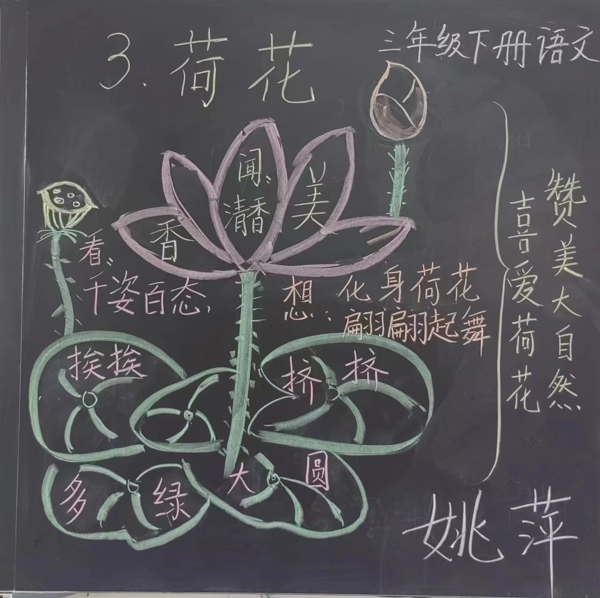 3.荷花
三年级下册语文
闻:清香
美
香
看:千姿百态,
想:化身荷花
翩翩起舞
挨挨
挤挤
多
绿
大
圆
喜爱荷花
赞美大自然
姚萍